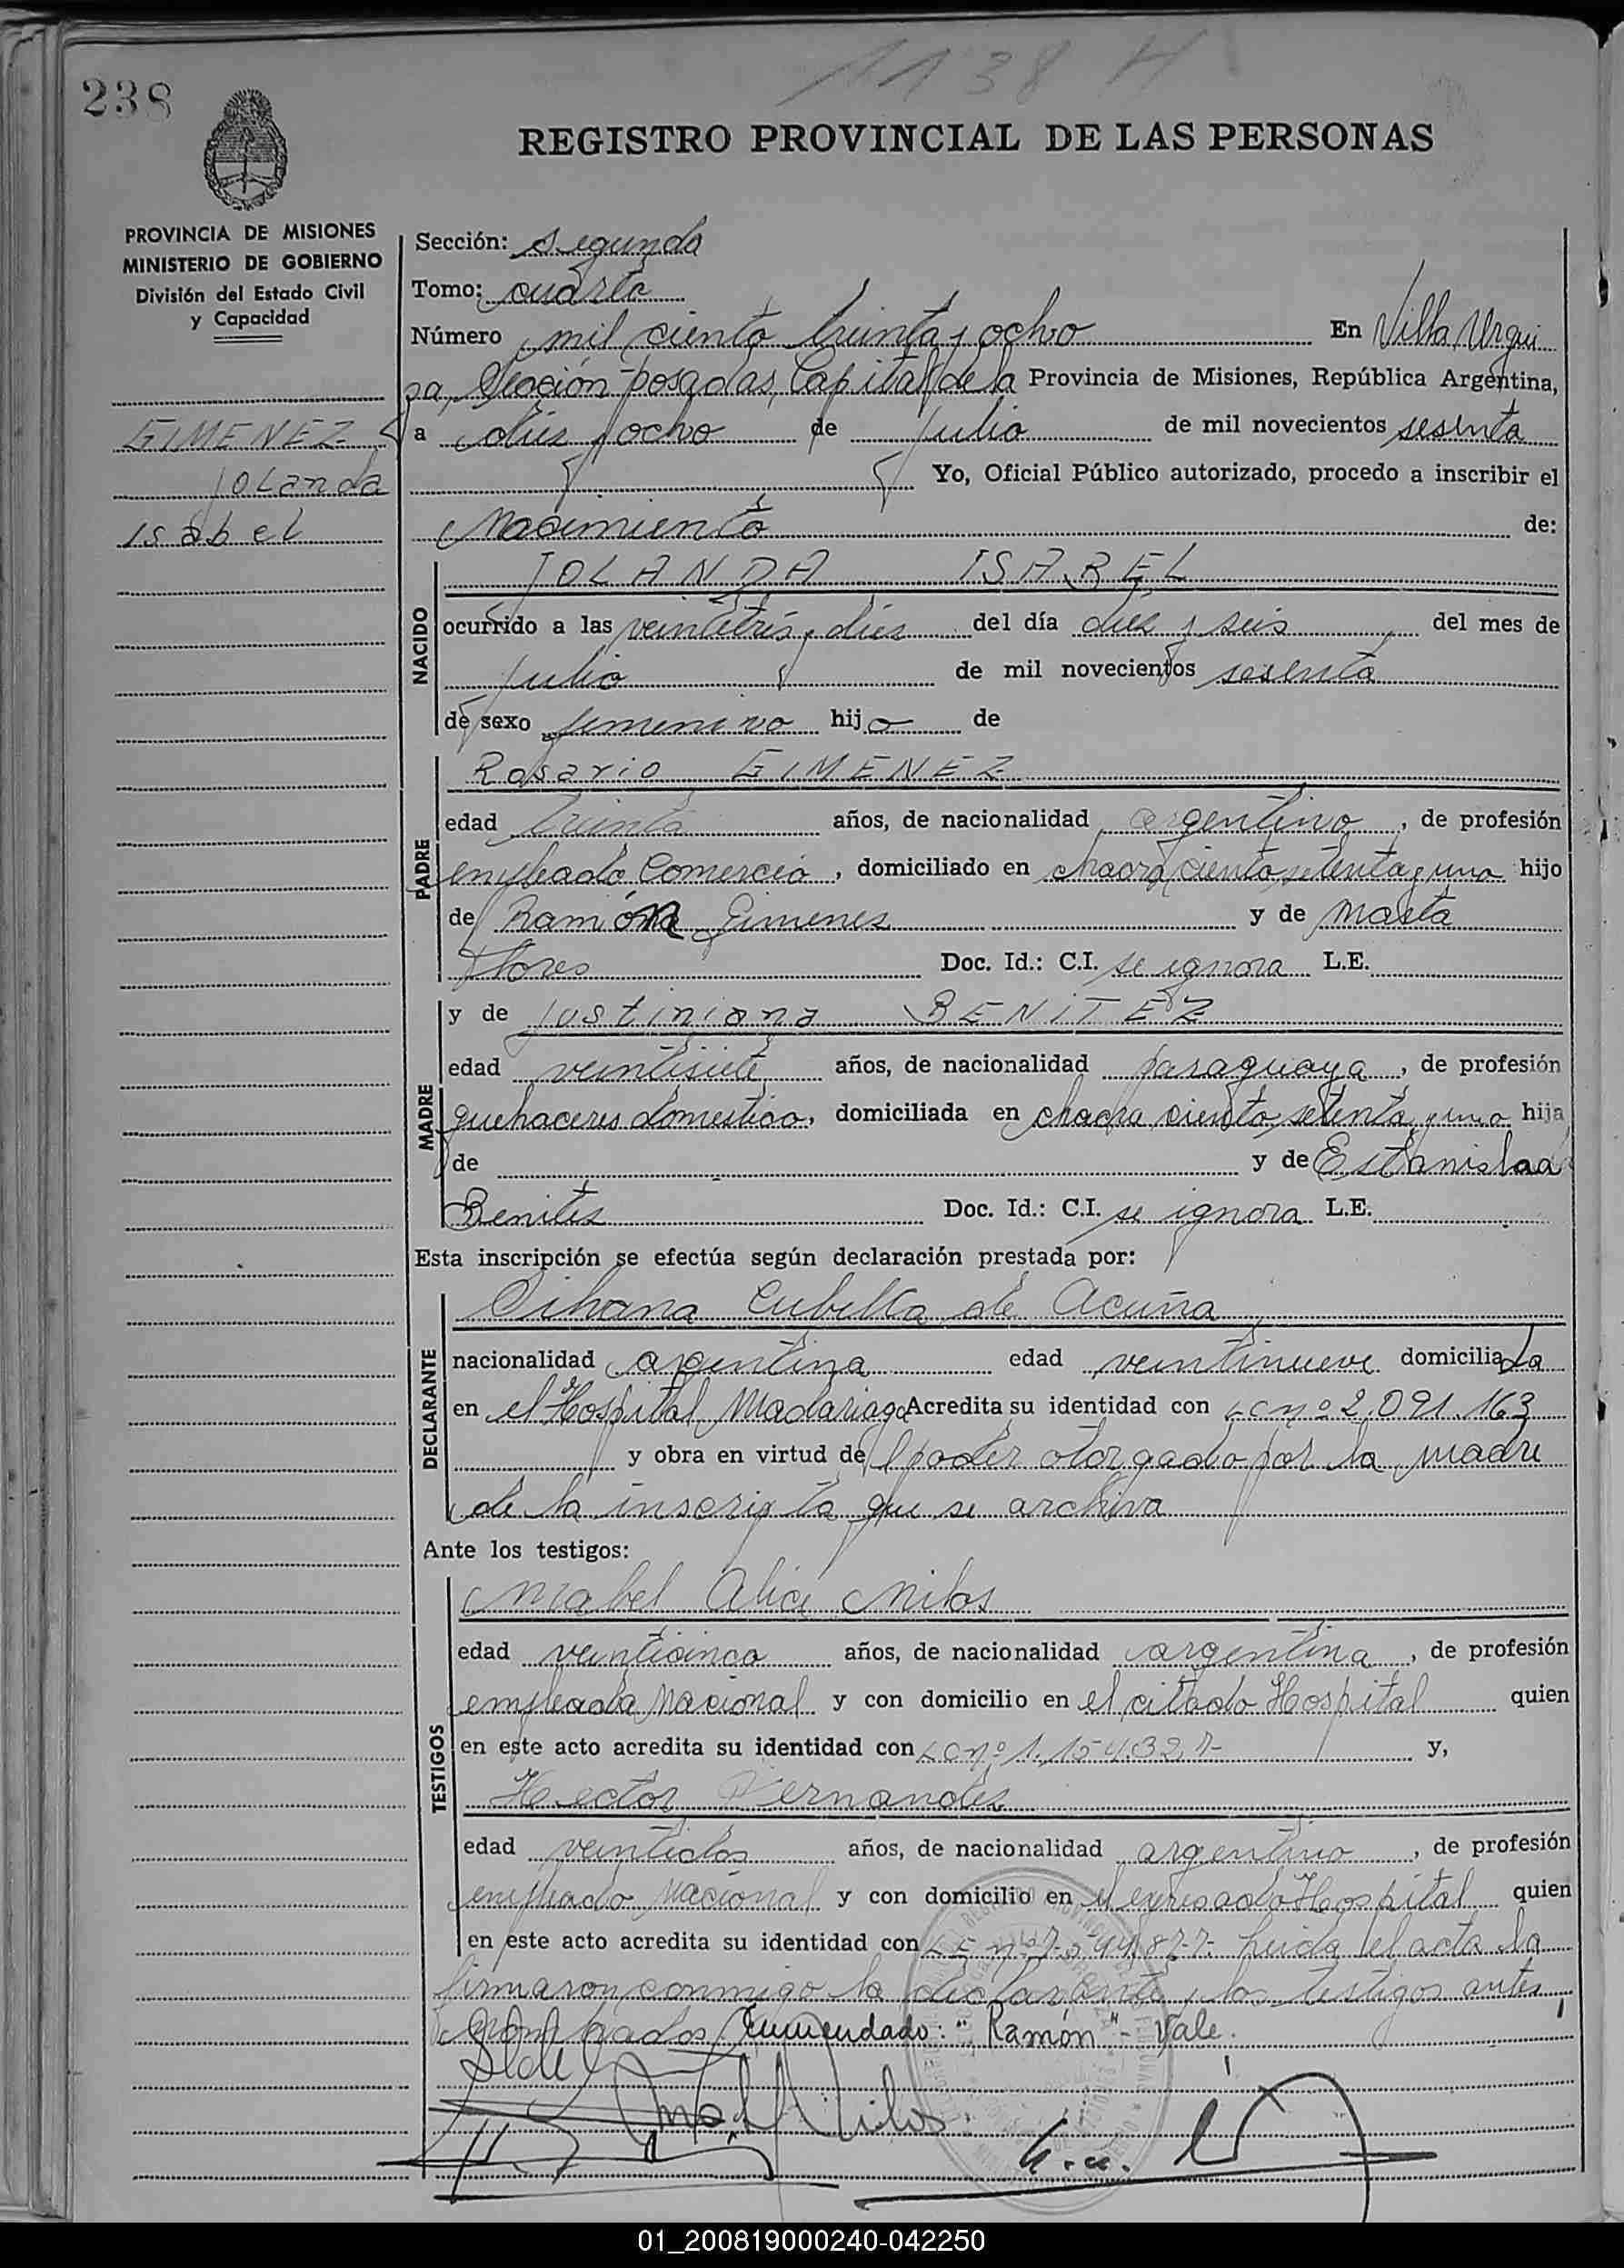 1138 H
238
REGISTRO PROVINCIAL DE LAS PERSONAS
PROVINCIA DE MISIONES
MINISTERIO DE GOBIERNO
División del Estado Civil
y Capacidad
GIMENEZ
Jolanda
Isabel
Sección: segunda
Tomo: cuarto
Número mil ciento treinta y ocho En Villa Urqui
za, Sección Posadas, Capital de la Provincia de Misiones, República Argentina,
a diez y ocho de julio de mil novecientos sesenta
Yo, Oficial Público autorizado, procedo a inscribir el
Nacimiento de:
NACIDO
JOLANDA ISABEL
ocurrido a las veintitrés y diez del día diez y seis del mes de
julio de mil novecientos sesenta
de sexo femenino hija de
PADRE
Rosario GIMENEZ
edad treinta años, de nacionalidad argentino, de profesión
empleado Comercio, domiciliado en chacra ciento setenta y uno hijo
de Ramón Gimenez y de Marta
Flores Doc. Id.: C.I. se ignora L.E.
MADRE
y de Justiniana BENITEZ
edad veintisiete años, de nacionalidad paraguaya, de profesión
quehaceres domestico, domiciliada en chacra ciento setenta y uno hija
de y de Estanislaa
Benites Doc. Id.: C.I. se ignora L.E.
Esta inscripción se efectúa según declaración prestada por:
DECLARANTE
Cubilla de Acuña
nacionalidad argentina edad veintinueve domiciliada
en el Hospital Madariaga Acredita su identidad con LC nº 2.091.163
y obra en virtud del poder otorgado por la madre
de la inscripta que se archiva
Ante los testigos:
TESTIGOS
Mabel Alice Milos
edad veinticinco años, de nacionalidad argentina, de profesión
empleada Nacional y con domicilio en el citado Hospital quien
en este acto acredita su identidad con LC nº 1.154.327- y,
Hector Fernandez
edad veintidos años, de nacionalidad argentino, de profesión
empleado Nacional y con domicilio en el expresado Hospital quien
en este acto acredita su identidad con LE nº Leida el acta la
firmaron conmigo la declarante y los testigos antes
nombrados. Enmendado: "Ramón" - Vale.
01_200819000240-042250